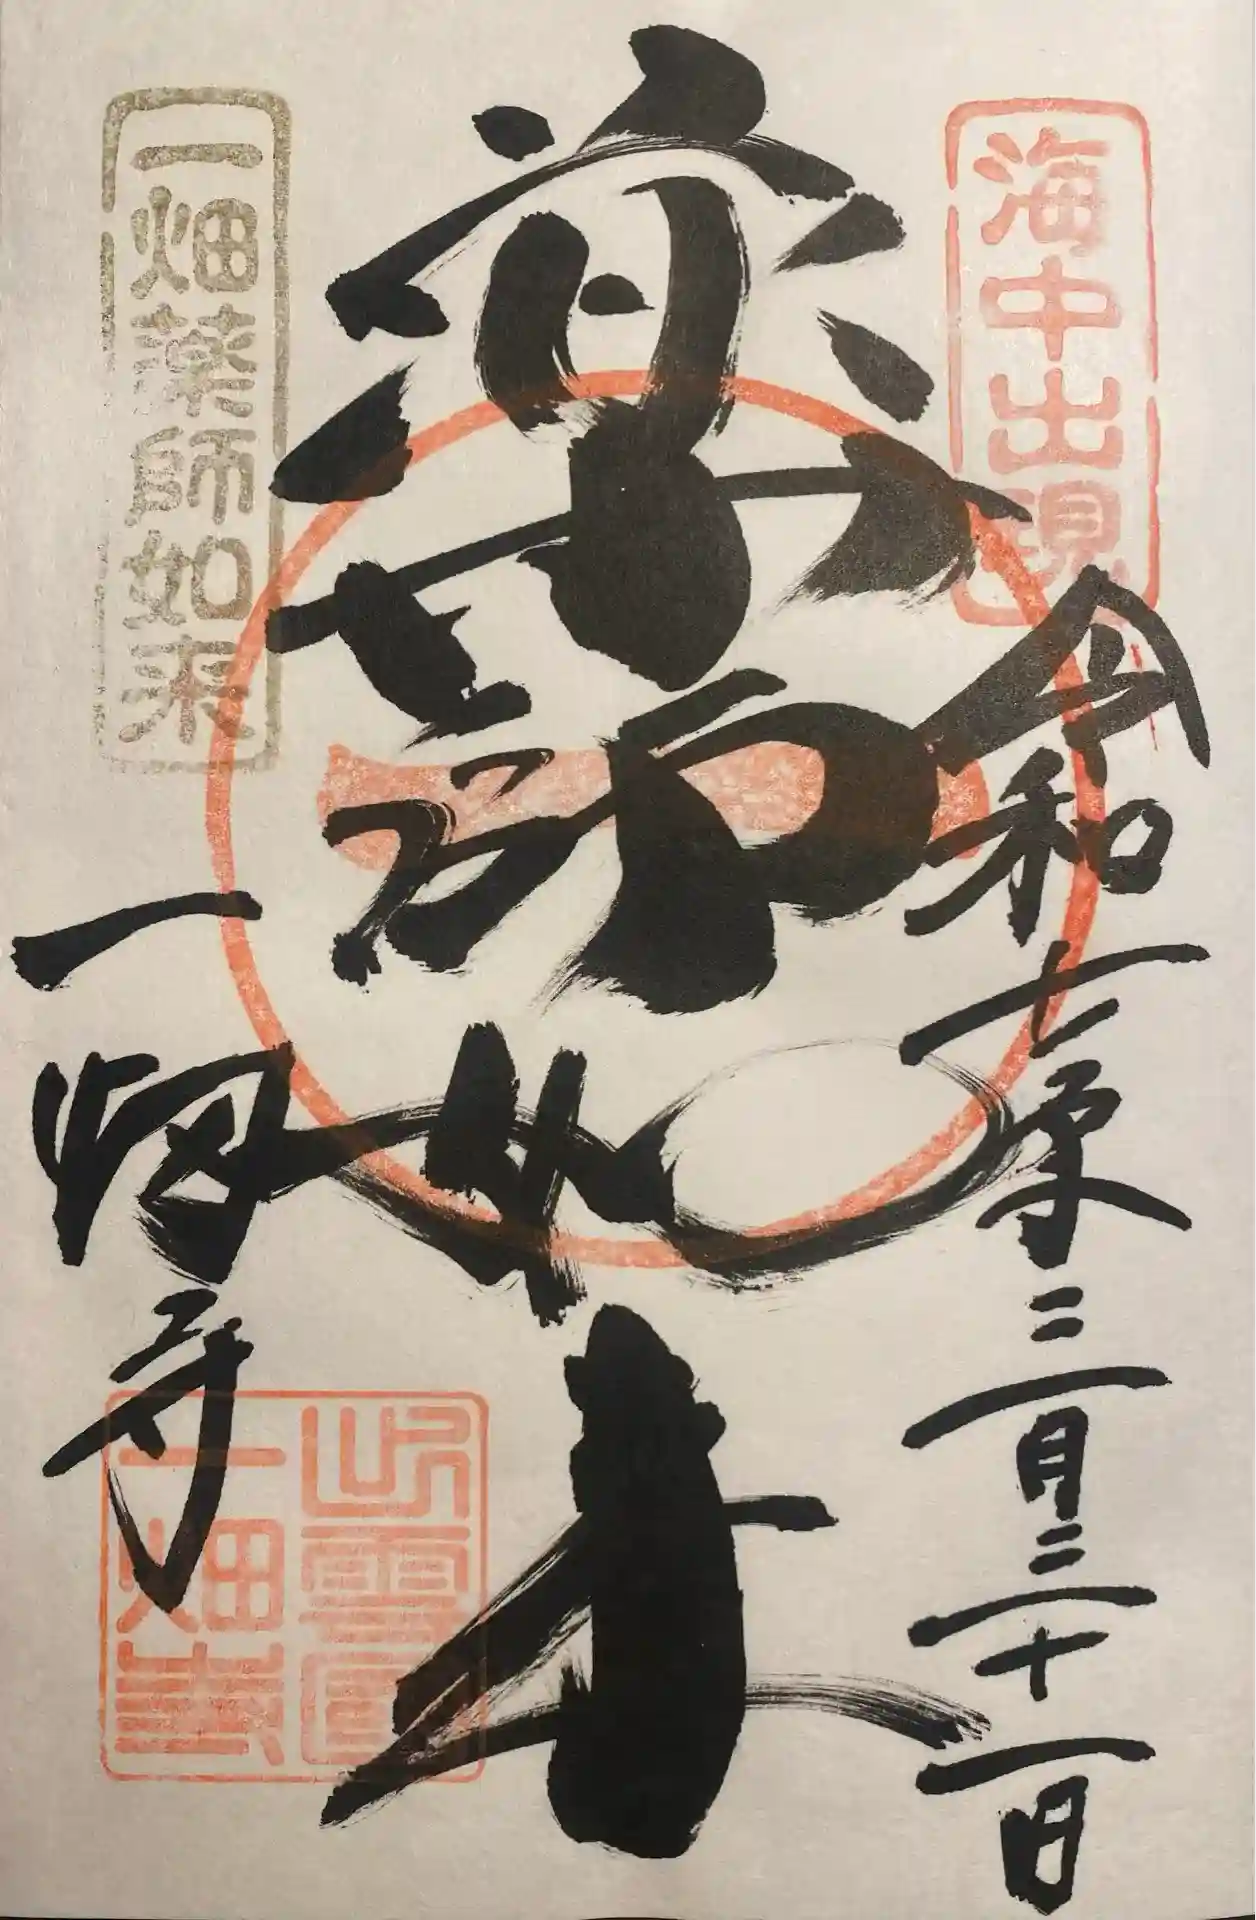 海中出現
令和七年三月三十一日
薬師如来
一畑薬師如来
一畑寺
出雲國
一畑寺